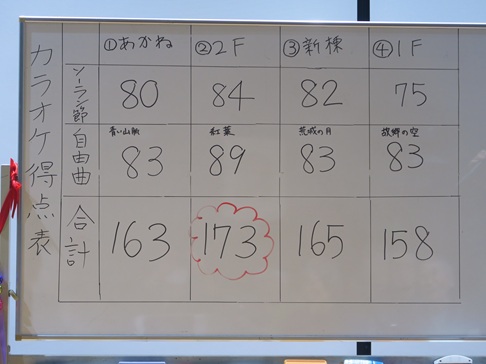 カラオケ得点表
①あかね ②2F ③新棟 ④1F
ソーラン節 80 84 82 75
青い山脈 紅葉 荒城の月 故郷の空
自由曲 83 89 83 83
合計 163 173 165 158